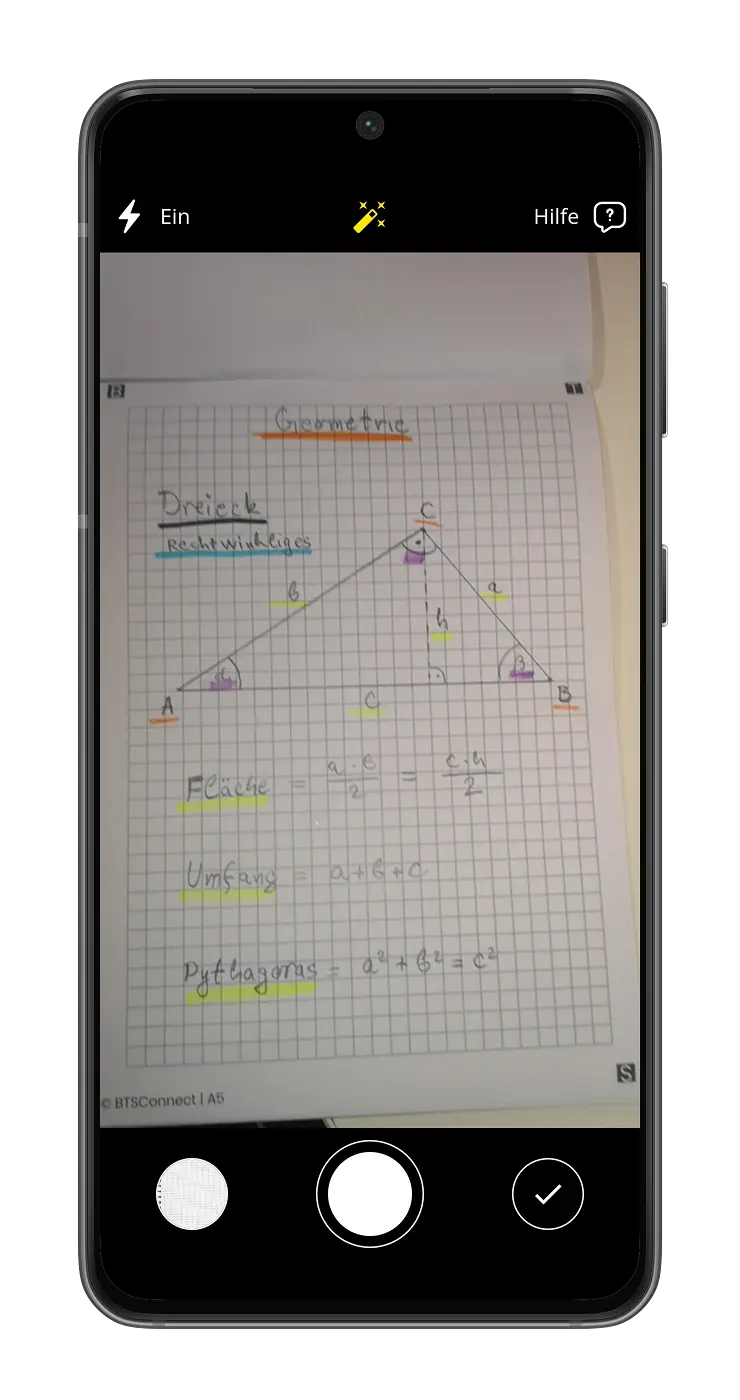 Ein
Hilfe
B
T
Geometrie
Dreieck
Rechtwinkliges
C
b
a
h
α
β
A
c
B
Fläche = a·b/2 = c·h/2
Umfang = a+b+c
Pythagoras = a² + b² = c²
S
© BTSConnect | A5